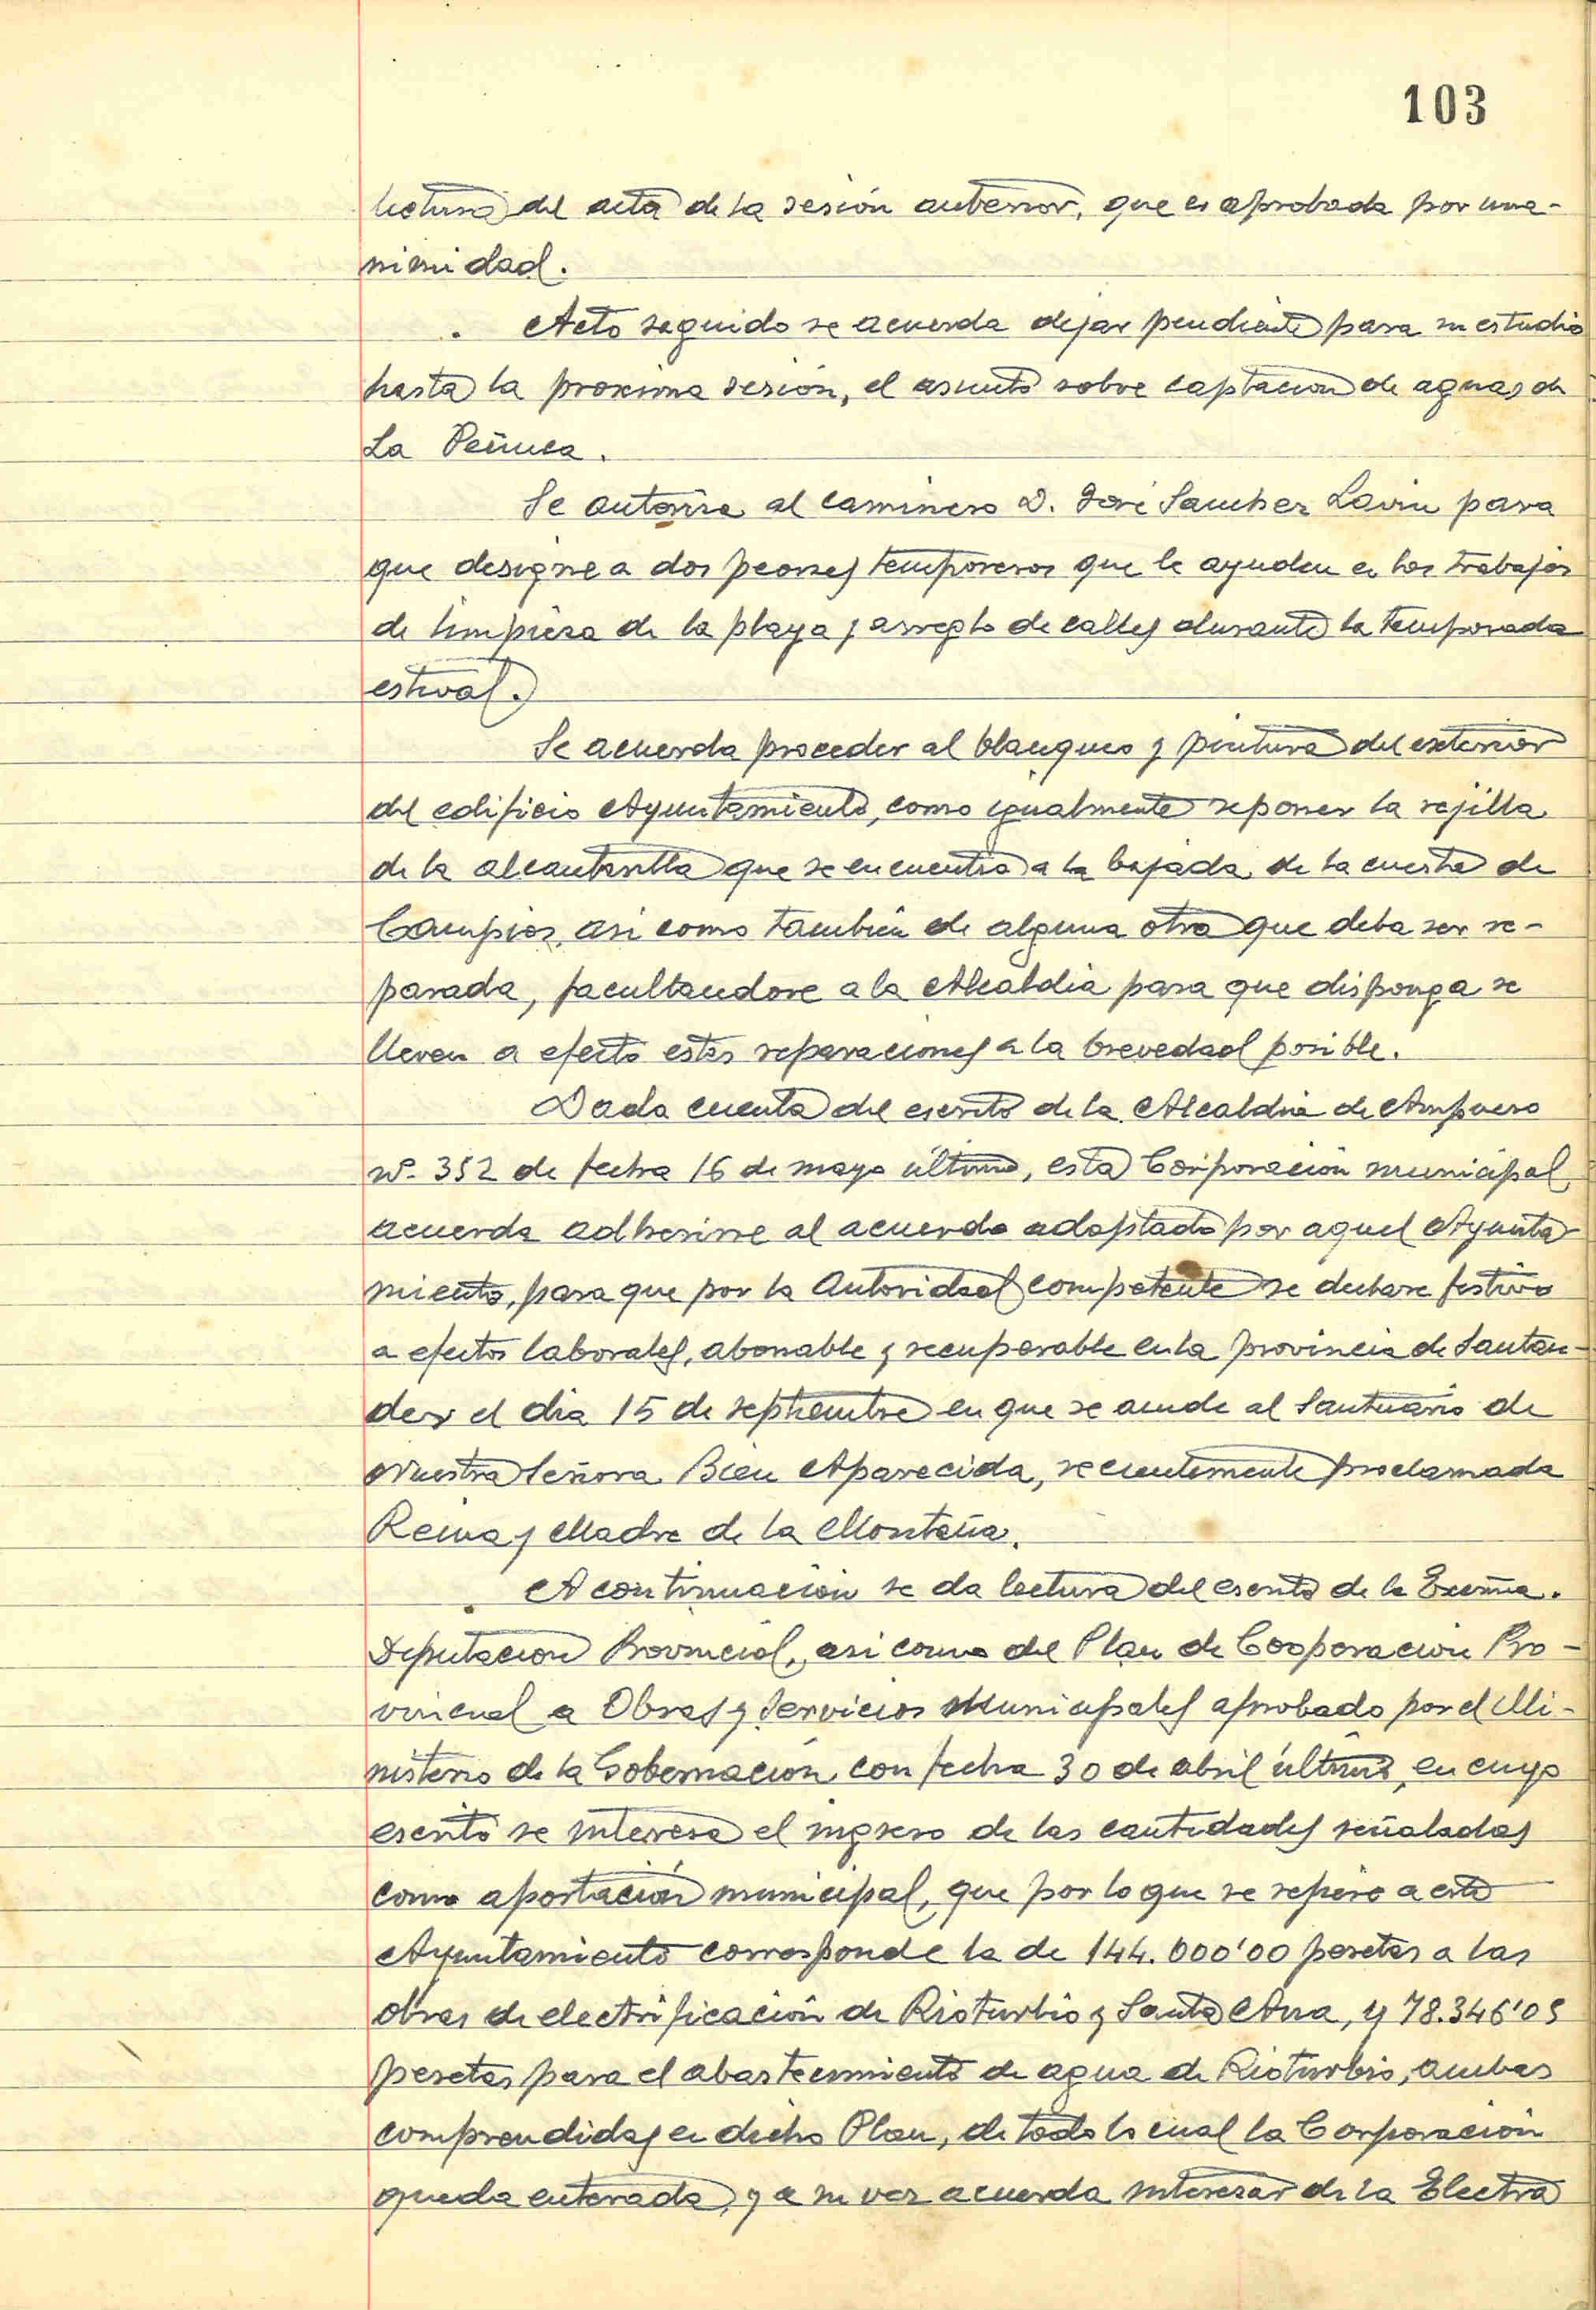 103
lectura del acta de la sesión anterior, que es aprobada por una-
nimidad.
Acto seguido se acuerda dejar pendiente para su estudio
hasta la proxima sesión, el asunto sobre captacion de aguas de
La Peñuca.
Se autoriza al caminero D. José Sanchez Lavin para
que designe a dos peones temporeros que le ayuden en los trabajos
de limpieza de la playa y arreglo de calles durante la temporada
estival.
Se acuerda proceder al blanqueo y pintura del exterior
del edificio Ayuntamiento, como igualmente reponer la rejilla
de la alcantarilla que se encuentra a la bajada de la cuesta de
Campios, asi como también de alguna otra que deba ser re-
parada, facultandose a la Alcaldia para que disponga se
lleven a efecto estas reparaciones a la brevedad posible.
Dada cuenta del escrito de la Alcaldia de Ampuero
nº. 352 de fecha 16 de mayo último, esta Corporación municipal
acuerda adherirse al acuerdo adoptado por aquel Ayunta
miento, para que por la Autoridad competente se declare festivo
a efectos laborales, abonable y recuperable en la provincia de Santan-
der el dia 15 de septiembre en que se acude al Santuario de
Nuestra Señora Bien Aparecida, recientemente proclamada
Reina y Madre de la Montaña.
A continuación se da lectura del escrito de la Excma.
Diputacion Provincial, asi como del Plan de Cooperacion Pro-
vincial a Obras y Servicios Municipales aprobado por el Mi-
nisterio de la Gobernación con fecha 30 de abril último, en cuyo
escrito se interesa el ingreso de las cantidades señaladas
como aportación municipal, que por lo que se refiere a este
Ayuntamiento corresponde la de 144.000'00 pesetas a las
obras de electrificación de Rioturbio y Santa Ana, y 78.346'05
pesetas para el abastecimiento de agua de Rioturbio, ambas
comprendidas en dicho Plan, de todo lo cual la Corporación
queda enterada, y a su vez acuerda interesar de la Electra